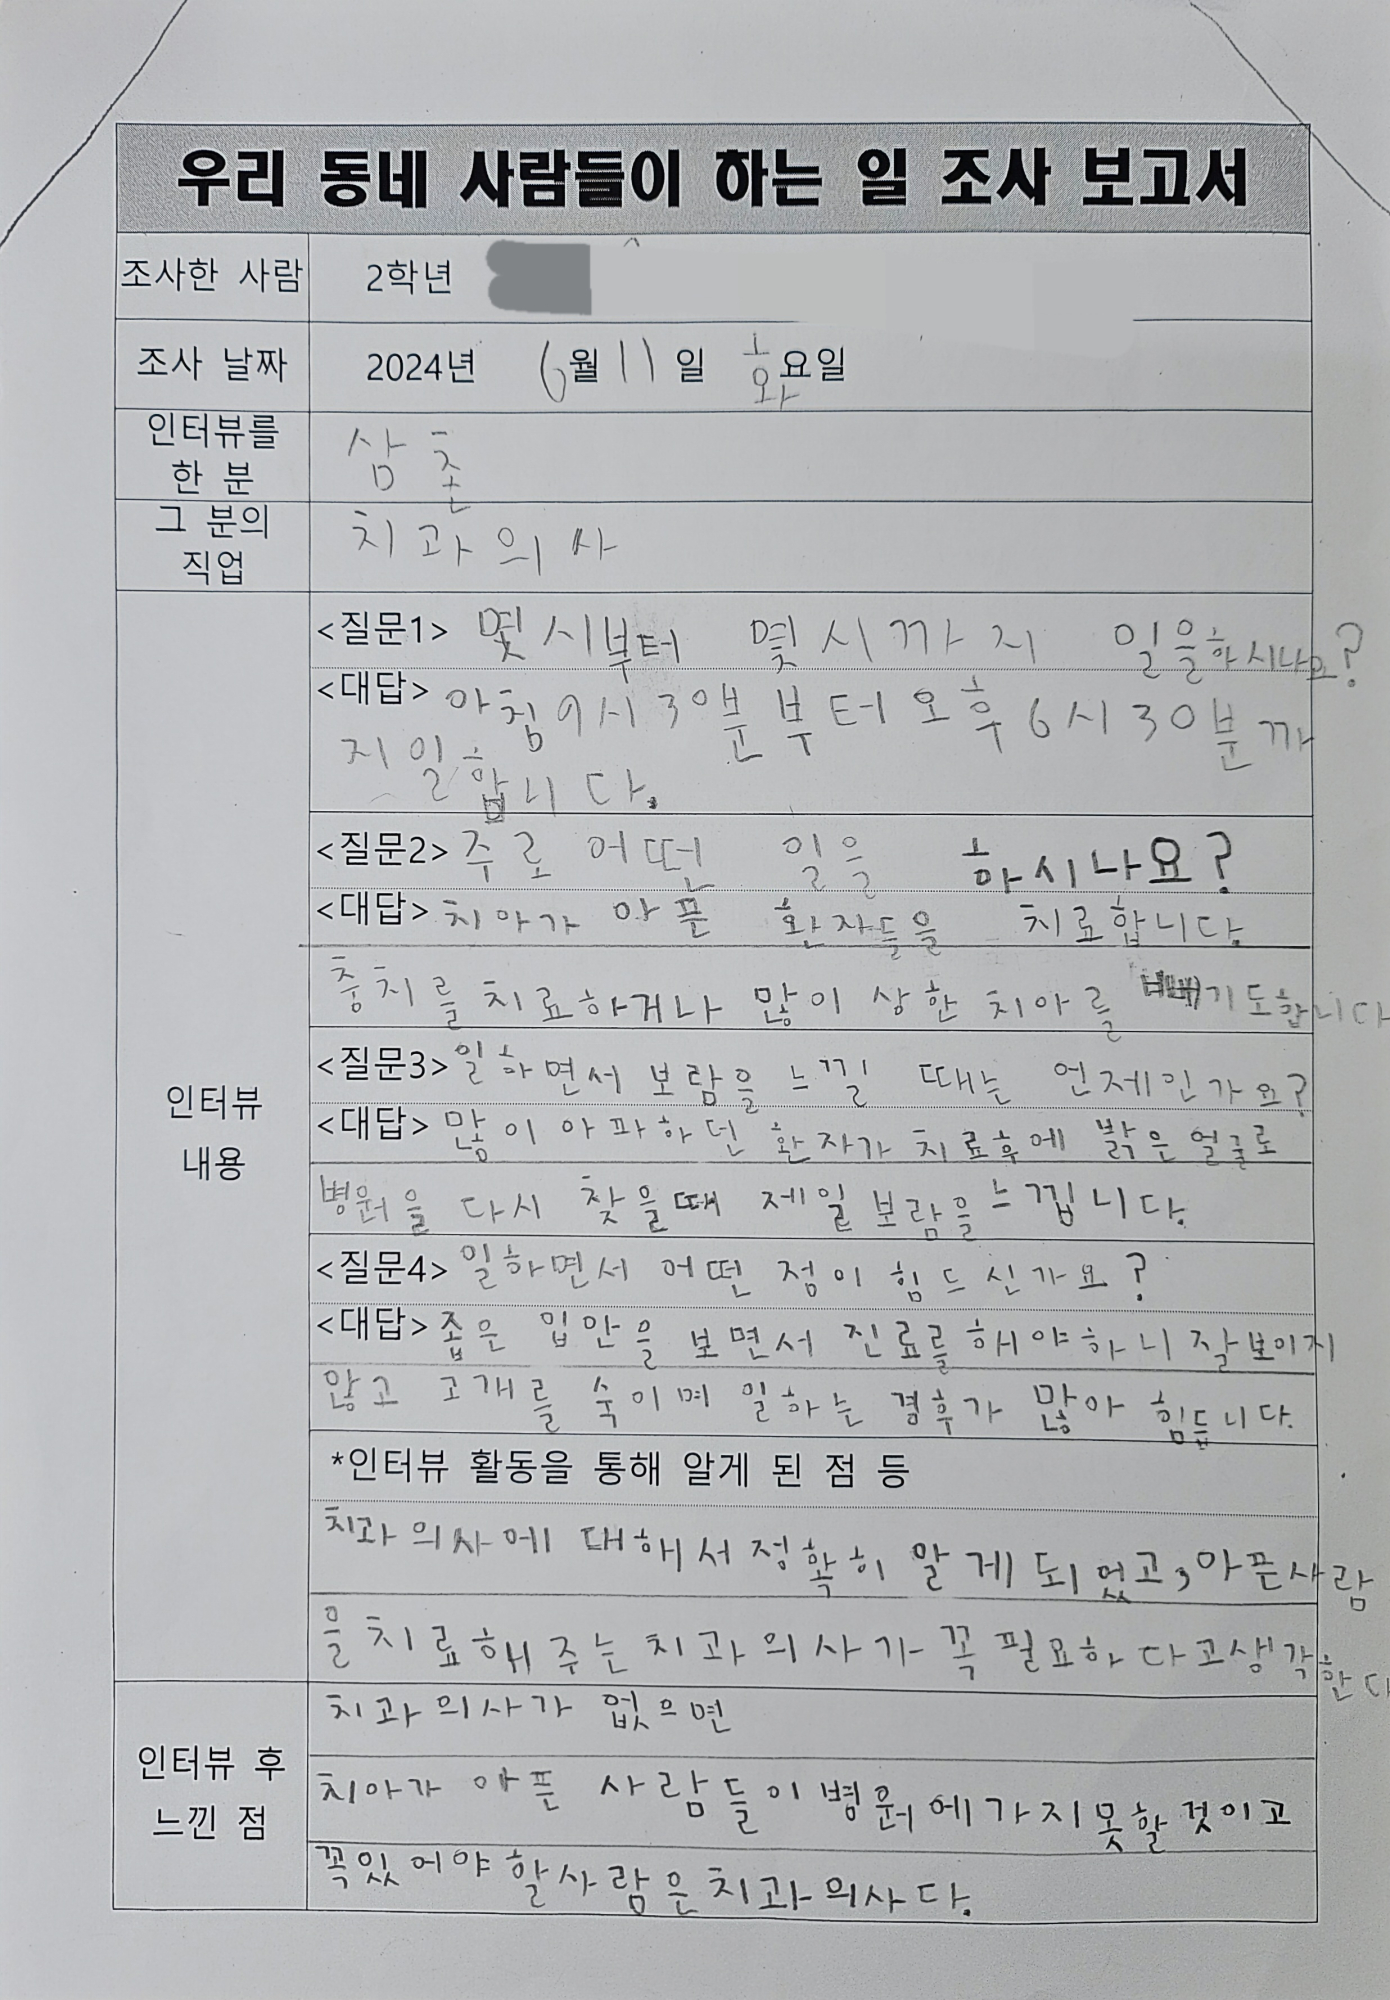 우리 동네 사람들이 하는 일 조사 보고서
조사한 사람 2학년
조사 날짜 2024년 6월 11일 화요일
인터뷰를
한 분
삼촌
그 분의
직업
치과의사
인터뷰
내용
<질문1> 몇시부터 몇시까지 일을하시나요?
<대답> 아침9시30분부터오후6시30분까
지일합니다.
<질문2> 주로 어떤 일을 하시나요?
<대답> 치아가 아픈 환자들을 치료합니다.
충치를 치료하거나 많이 상한 치아를 빼기도합니다
<질문3> 일하면서 보람을 느낄 때는 언제인가요?
<대답> 많이 아파하던 환자가 치료후에 밝은 얼굴로
병원을 다시 찾을때 제일 보람을 느낍니다.
<질문4> 일하면서 어떤 점이 힘드신가요?
<대답> 좁은 입안을 보면서 진료를해야하니 잘보이지
않고 고개를 숙이며 일하는 경우가 많아 힘듭니다.
*인터뷰 활동을 통해 알게 된 점 등
치과의사에 대해서정확히 알게되었고, 아픈사람
을치료해주는치과의사가꼭필요하다고생각한다
인터뷰 후
느낀 점
치과의사가 없으면
치아가 아픈 사람들이병원에가지못할것이고
꼭있어야할사람은치과의사다.